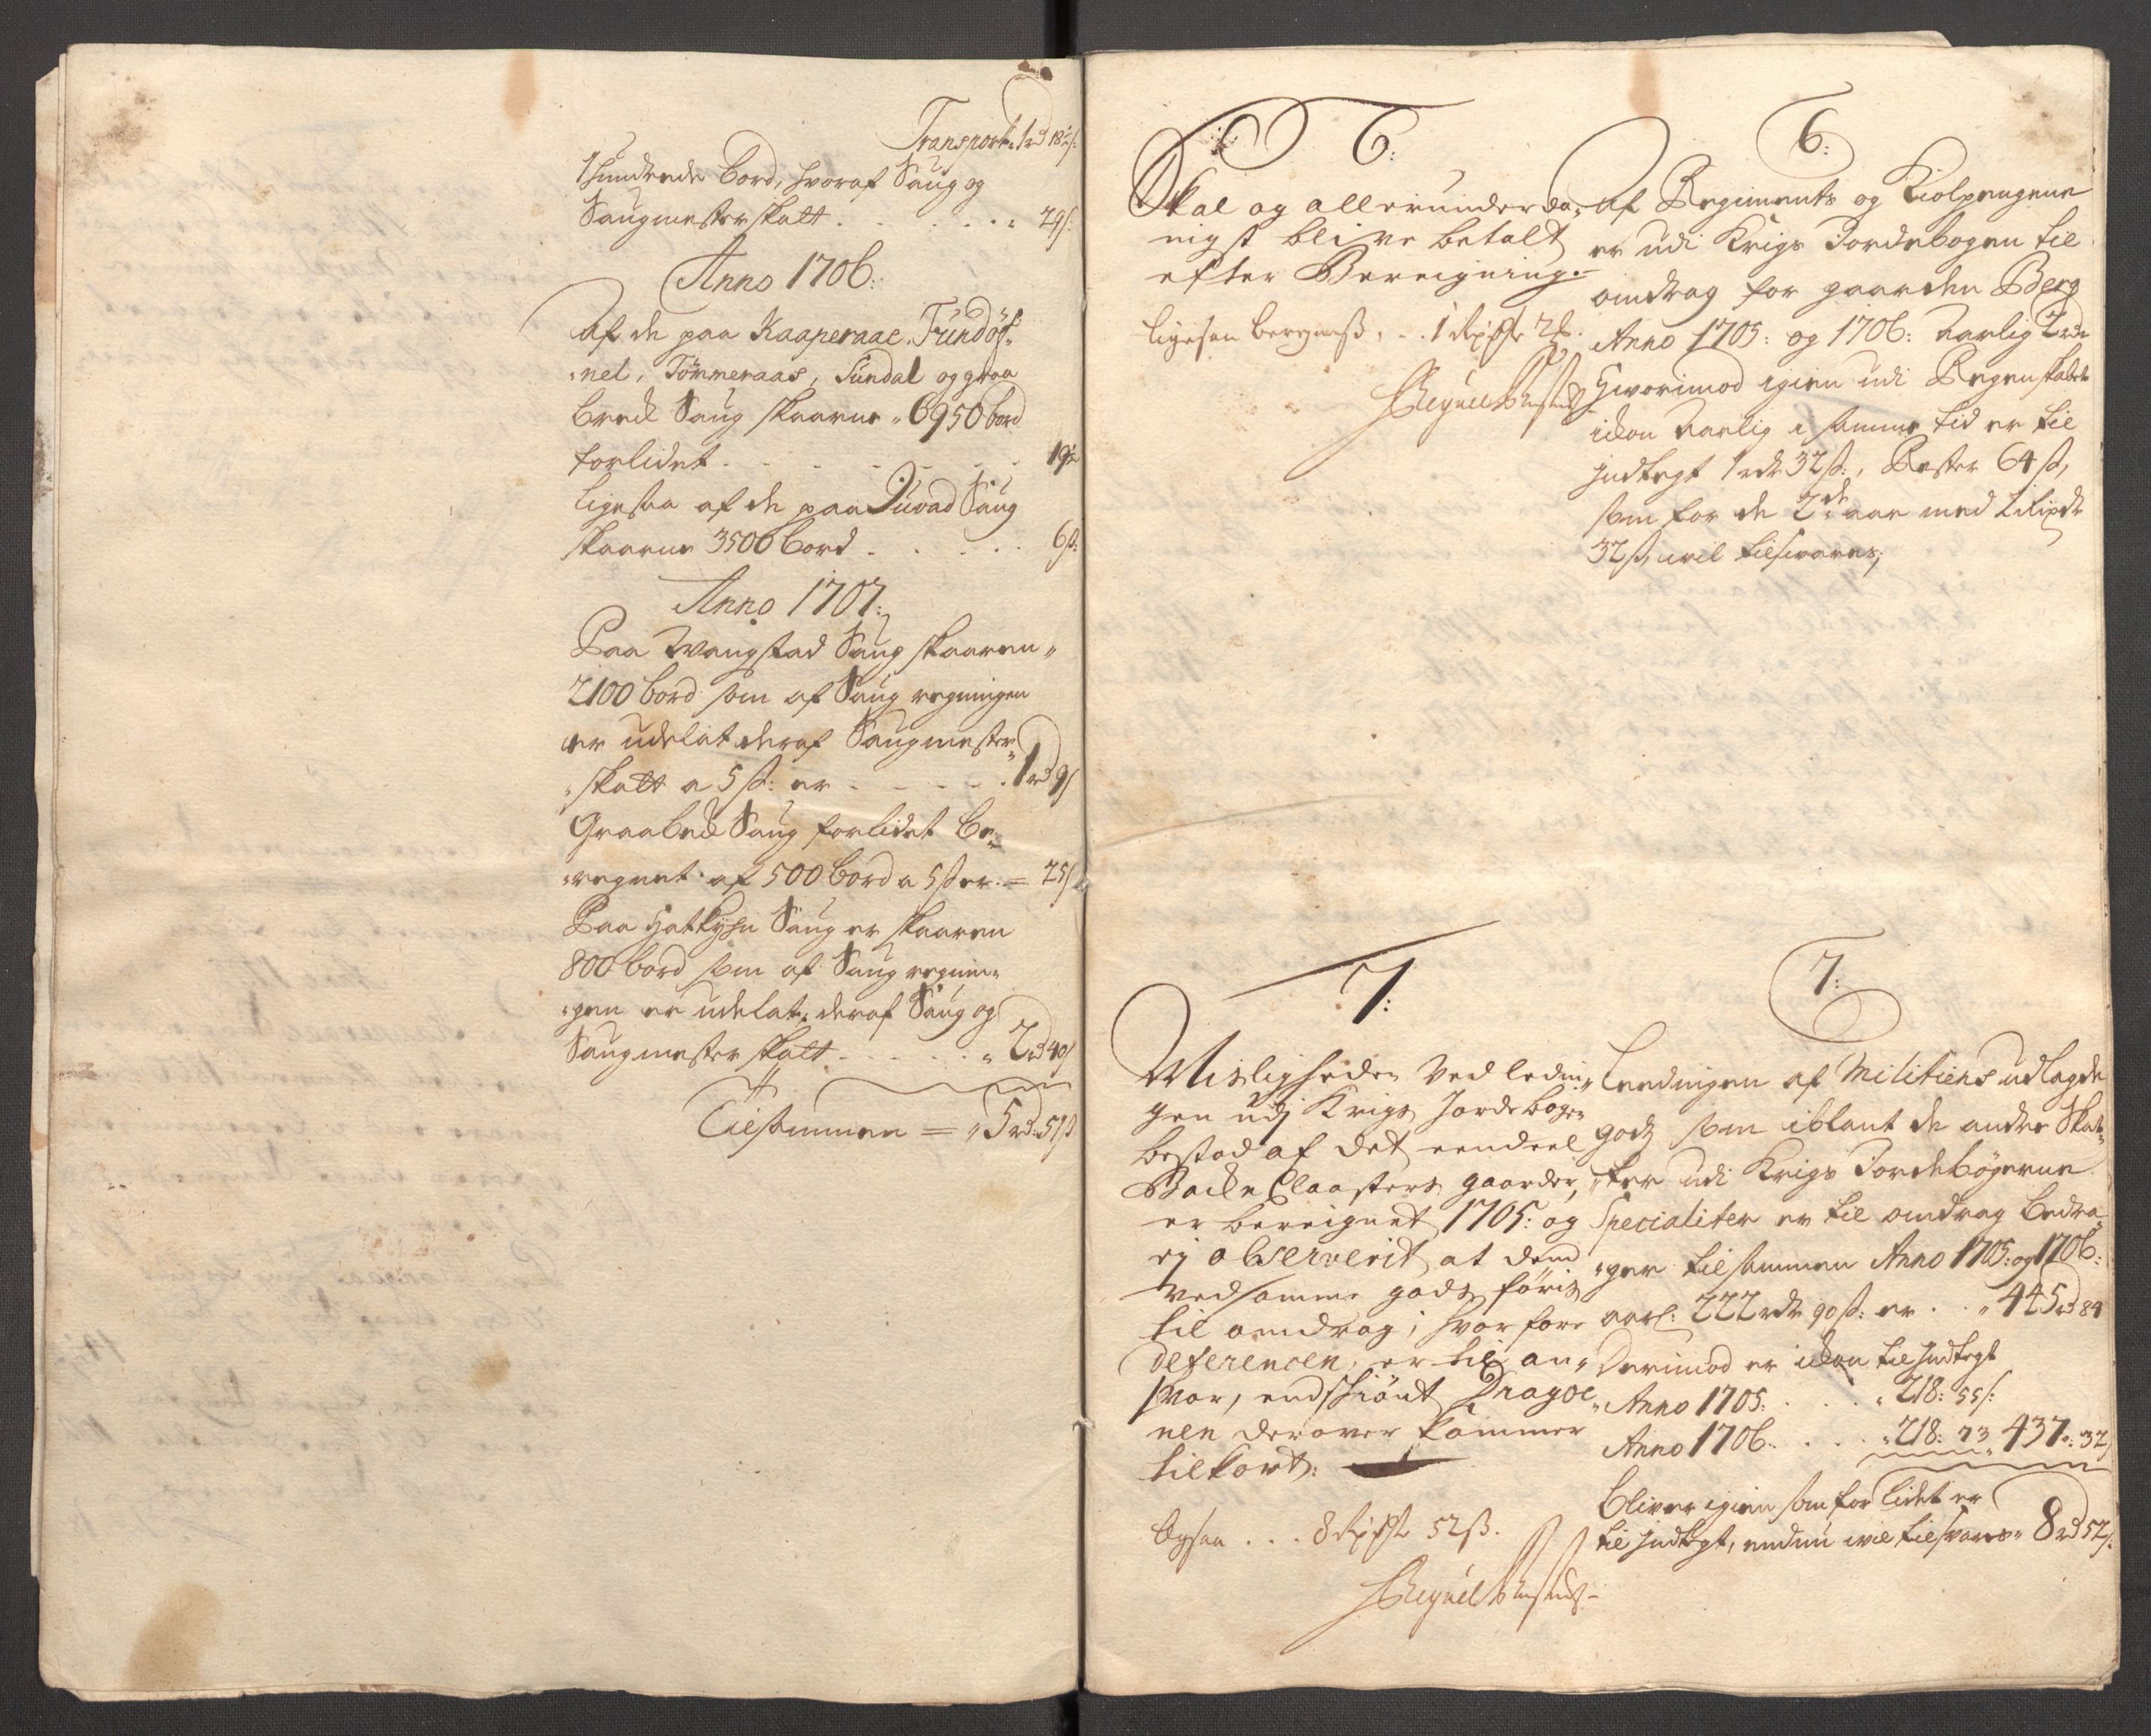 Transport: 1 rd 18½ s:
1 hundrede bord, hvoraf Saug og
Saugmesterskatt . . . . . . 29 s:
Anno 1706:
Af de paa Kaaperaae, Tründös
nel, Tömmeraas, Sundal og graa
breck Saug skaarne 6950 bord
forlidet . . . . . . . 19½
ligesaa af de paa Duvad Saug
skaarne 3500 bord . . . . . 6 ß:
Anno 1707:
Paa Wangstad Saug skaaren
2100 bord som af Saug regningen
er udelat deraf Saugmester
skatt a 5 ß: er . . . . . 1 rd 9 s
Graabreck Saug forlidet be-
regnet af 500 bord a 5 ß er = 25 s
Paa Saug er skaaren
800 bord som af Saug regnin-
gen er udelat, deraf Saug og
Saugmester skatt . . . . . 2 rd 40 s
Tilsammen = 5 rd: 51 ß
6:
Skal og allerunderda-
nigst blive betalt
efter Bereigning.
ligesaa . . 1 2 ß.
6:
af Regiments og Kiolpengene
er udi Krigs Jordebogen til
omdrag for gaarden Berg
Anno 1705: og 1706: Aarlig 2 rdr
Hworimod igien udi Regenskabet
ickon Aarlig i samme tid er til
Indtegt 1 rdr 32 ß:, Rester 64 ß,
som for de 2de aar med 1 rixdr
32 ß, wil tilswares;
7:
Misligheden ved ledin-
gen udj Krigs Jordebogen
bestod af det eendeel
Backe Claasters gaarder,
er bereignet 1705: og
ej observerit, at dend
ved samme gods föris
til omdrag; hvorfore
deferencen, er til an-
svar, endskiönt Dragoe-
nen derover kommer
tilkort:
Ogsaa . . . 8 52 ß.
7:
Leedingen af Militiens udlagde
godz som iblant de andre Skat-
ter udi Krigs Jordebögerne
Specialiter er til omdrag bedra-
ger tilsammen Anno 1705: og 1706:
aarl: 222 rdr 90 ß: er . . 445 rd 84
Derimod er ickon til Indtegt
Anno 1705: . . . . 218: 55 s:
Anno 1706: . . . . 218: 73 437: 32 s
bliver igien som for lidet er
til Indtegt, endnu wil tilsvares 8 rd 52 s: